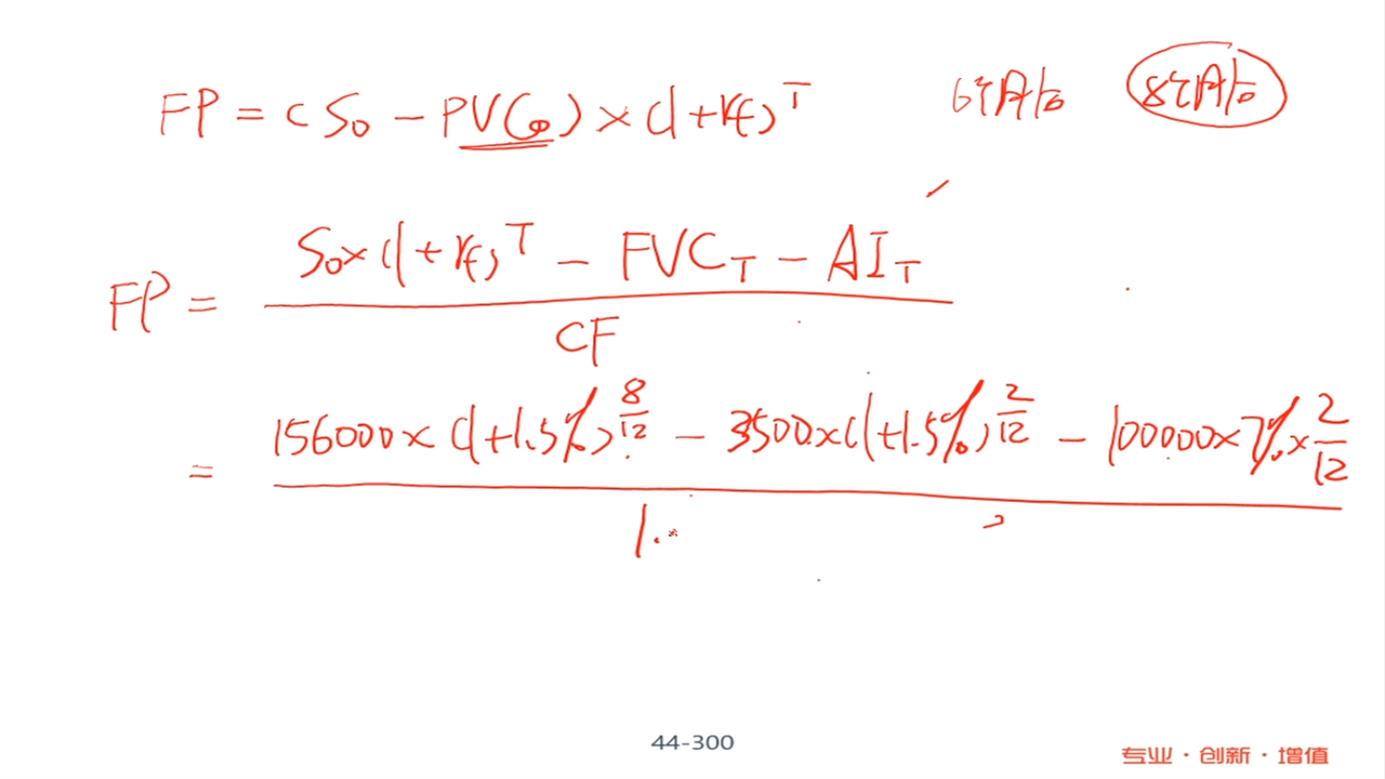 FP = (S₀ - PVC₀) × (1+rf)ᵀ 6个月后 8个月后
S₀×(1+rf)ᵀ - FVC_T - AI_T
FP =
CF
156000×(1+1.5%)^8/12 - 3500×(1+1.5%)^2/12 - 100000×7%×2/12
=
1.
44-300
专业·创新·增值